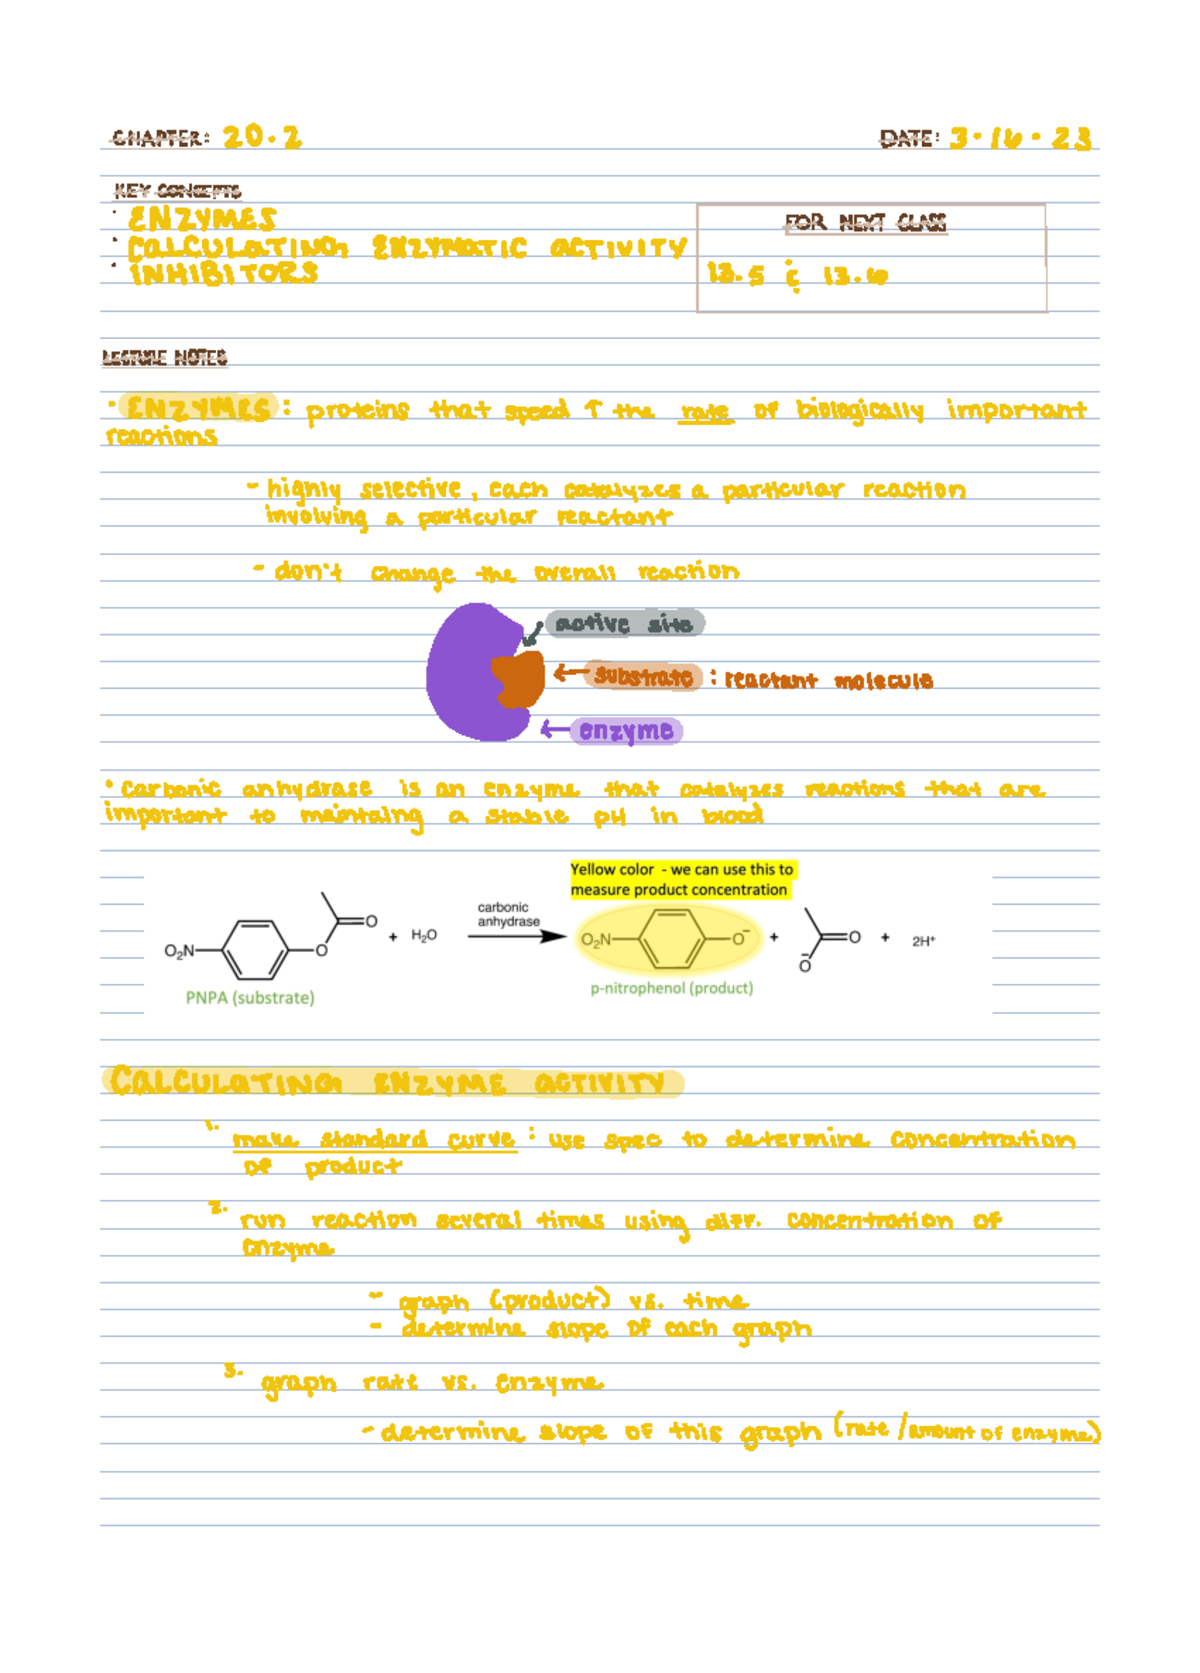 CHAPTER: 20.2 DATE: 3.16.23
KEY CONCEPTS
· ENZYMES
· CALCULATING ENZYMATIC ACTIVITY
· INHIBITORS
FOR NEXT CLASS
13.5 & 13.6
LECTURE NOTES
· ENZYMES: proteins that speed ↑ the rate of biologically important
reactions
- highly selective, each catalyzes a particular reaction
involving a particular reactant
- don't change the overall reaction
active site
substrate : reactant molecule
enzyme
· Carbonic anhydrase is an enzyme that catalyzes reactions that are
important to maintaing a stable pH in blood
Yellow color - we can use this to
measure product concentration
carbonic
anhydrase
O₂N O O + H₂O O₂N O⁻ + O O⁻ + 2H⁺
PNPA (substrate) p-nitrophenol (product)
CALCULATING ENZYME ACTIVITY
1. make standard curve : use spec to determine concentration
of product
2. run reaction several times using diff. concentration of
enzyme
- graph (product) vs. time
- determine slope of each graph
3. graph rate vs. enzyme
- determine slope of this graph (rate / amount of enzyme)